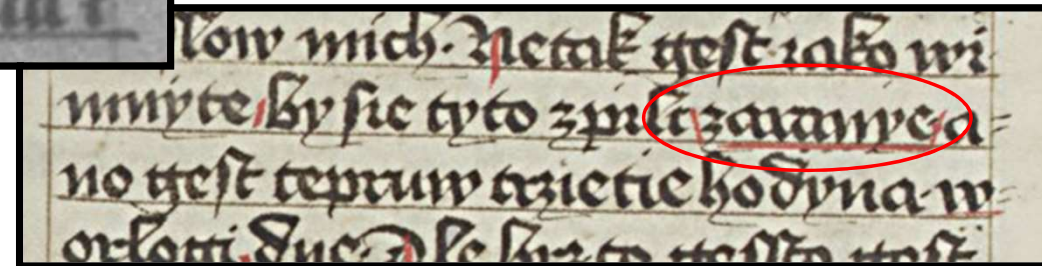 slow mich. Netak gest iako wi
mnyte by sie tyto zpili zaranye a=
no gest tepruw trzietie hodyna w
orlogi dne